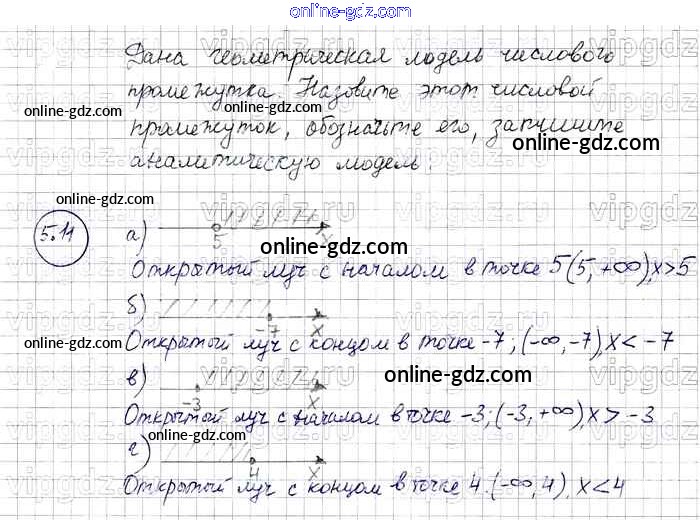 online-gdz.com
Дана геометрическая модель числового
промежутка. Назовите этот числовой
промежуток, обозначьте его, запишите
аналитическую модель.
5.11
а)
5
x
Открытый луч с началом в точке 5 (5, +∞), x>5
б)
-7
x
Открытый луч с концом в точке -7; (-∞, -7), x < -7
в)
-3
x
Открытый луч с началом в точке -3; (-3, +∞), x > -3
г)
4
x
Открытый луч с концом в точке 4. (-∞, 4), x<4
online-gdz.com
online-gdz.com
online-gdz.com
online-gdz.com
online-gdz.com
online-gdz.com
online-gdz.com
online-gdz.com
online-gdz.com